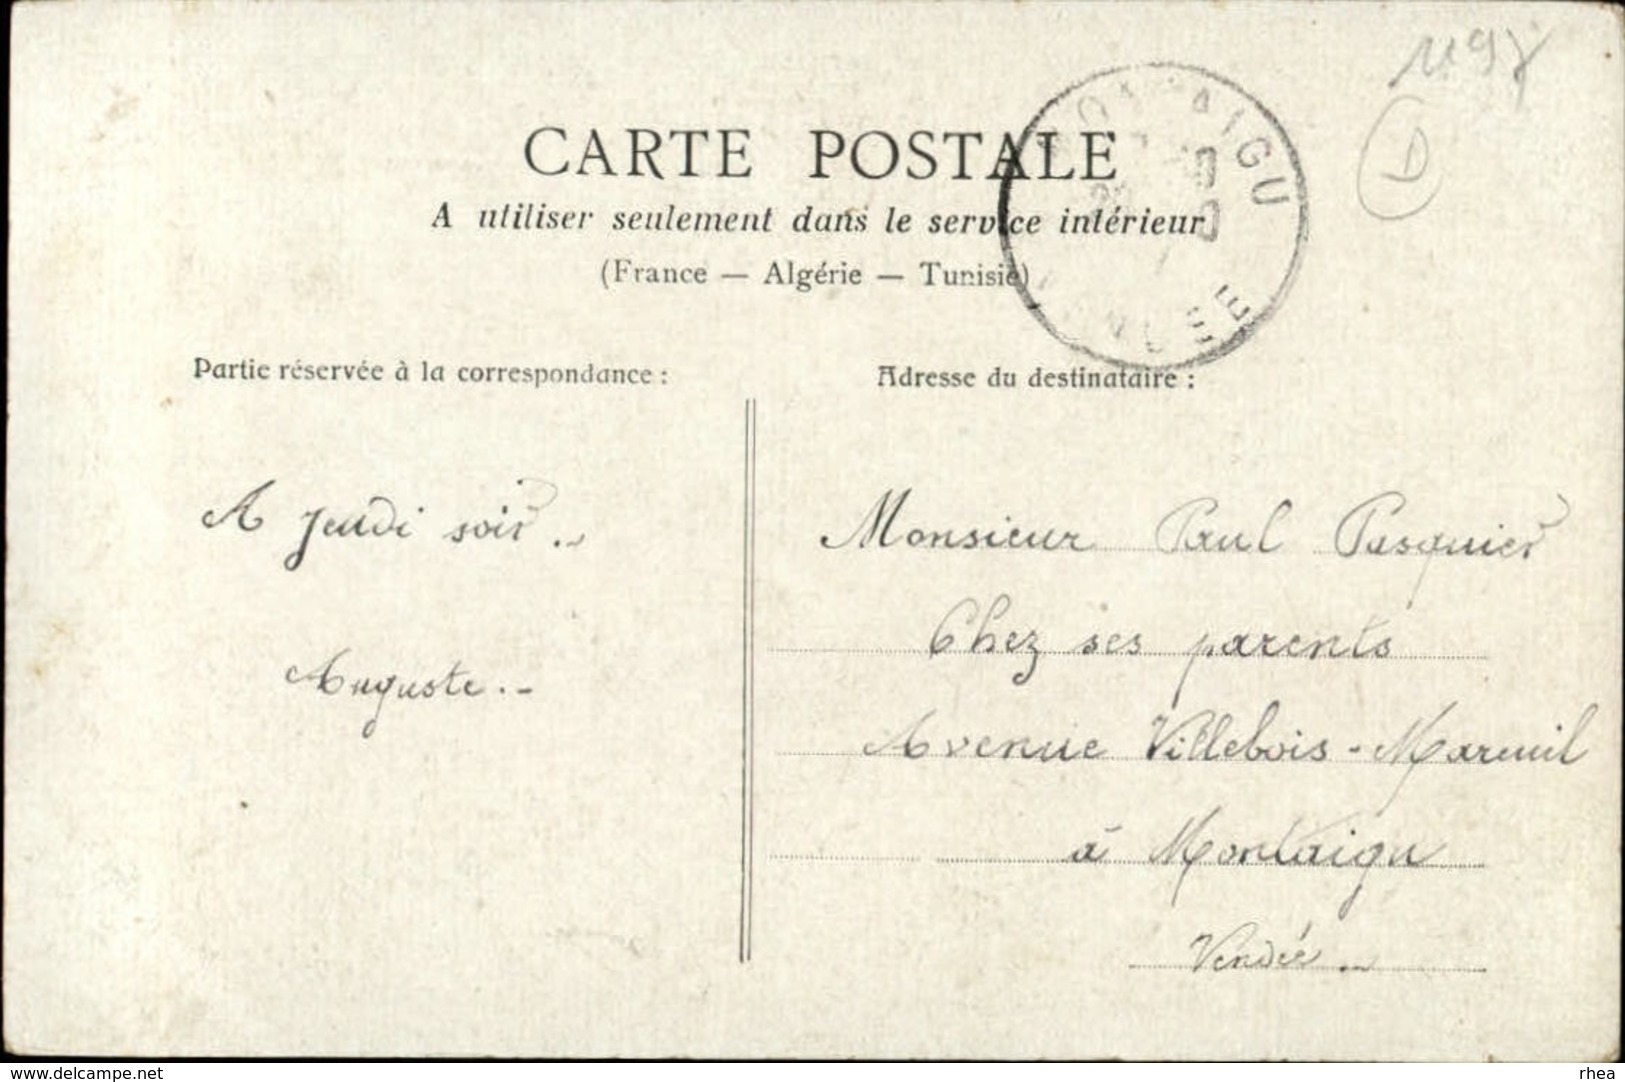 1198
D
CARTE POSTALE
A utiliser seulement dans le service intérieur
(France — Algérie — Tunisie)
Partie réservée à la correspondance :
A jeudi soir..
Auguste.-
Adresse du destinataire :
Monsieur Paul Pasquier
Chez ses parents
Avenue Villebois-Mareuil
à Montaigu
Vendée..
www.delcampe.net
rhea